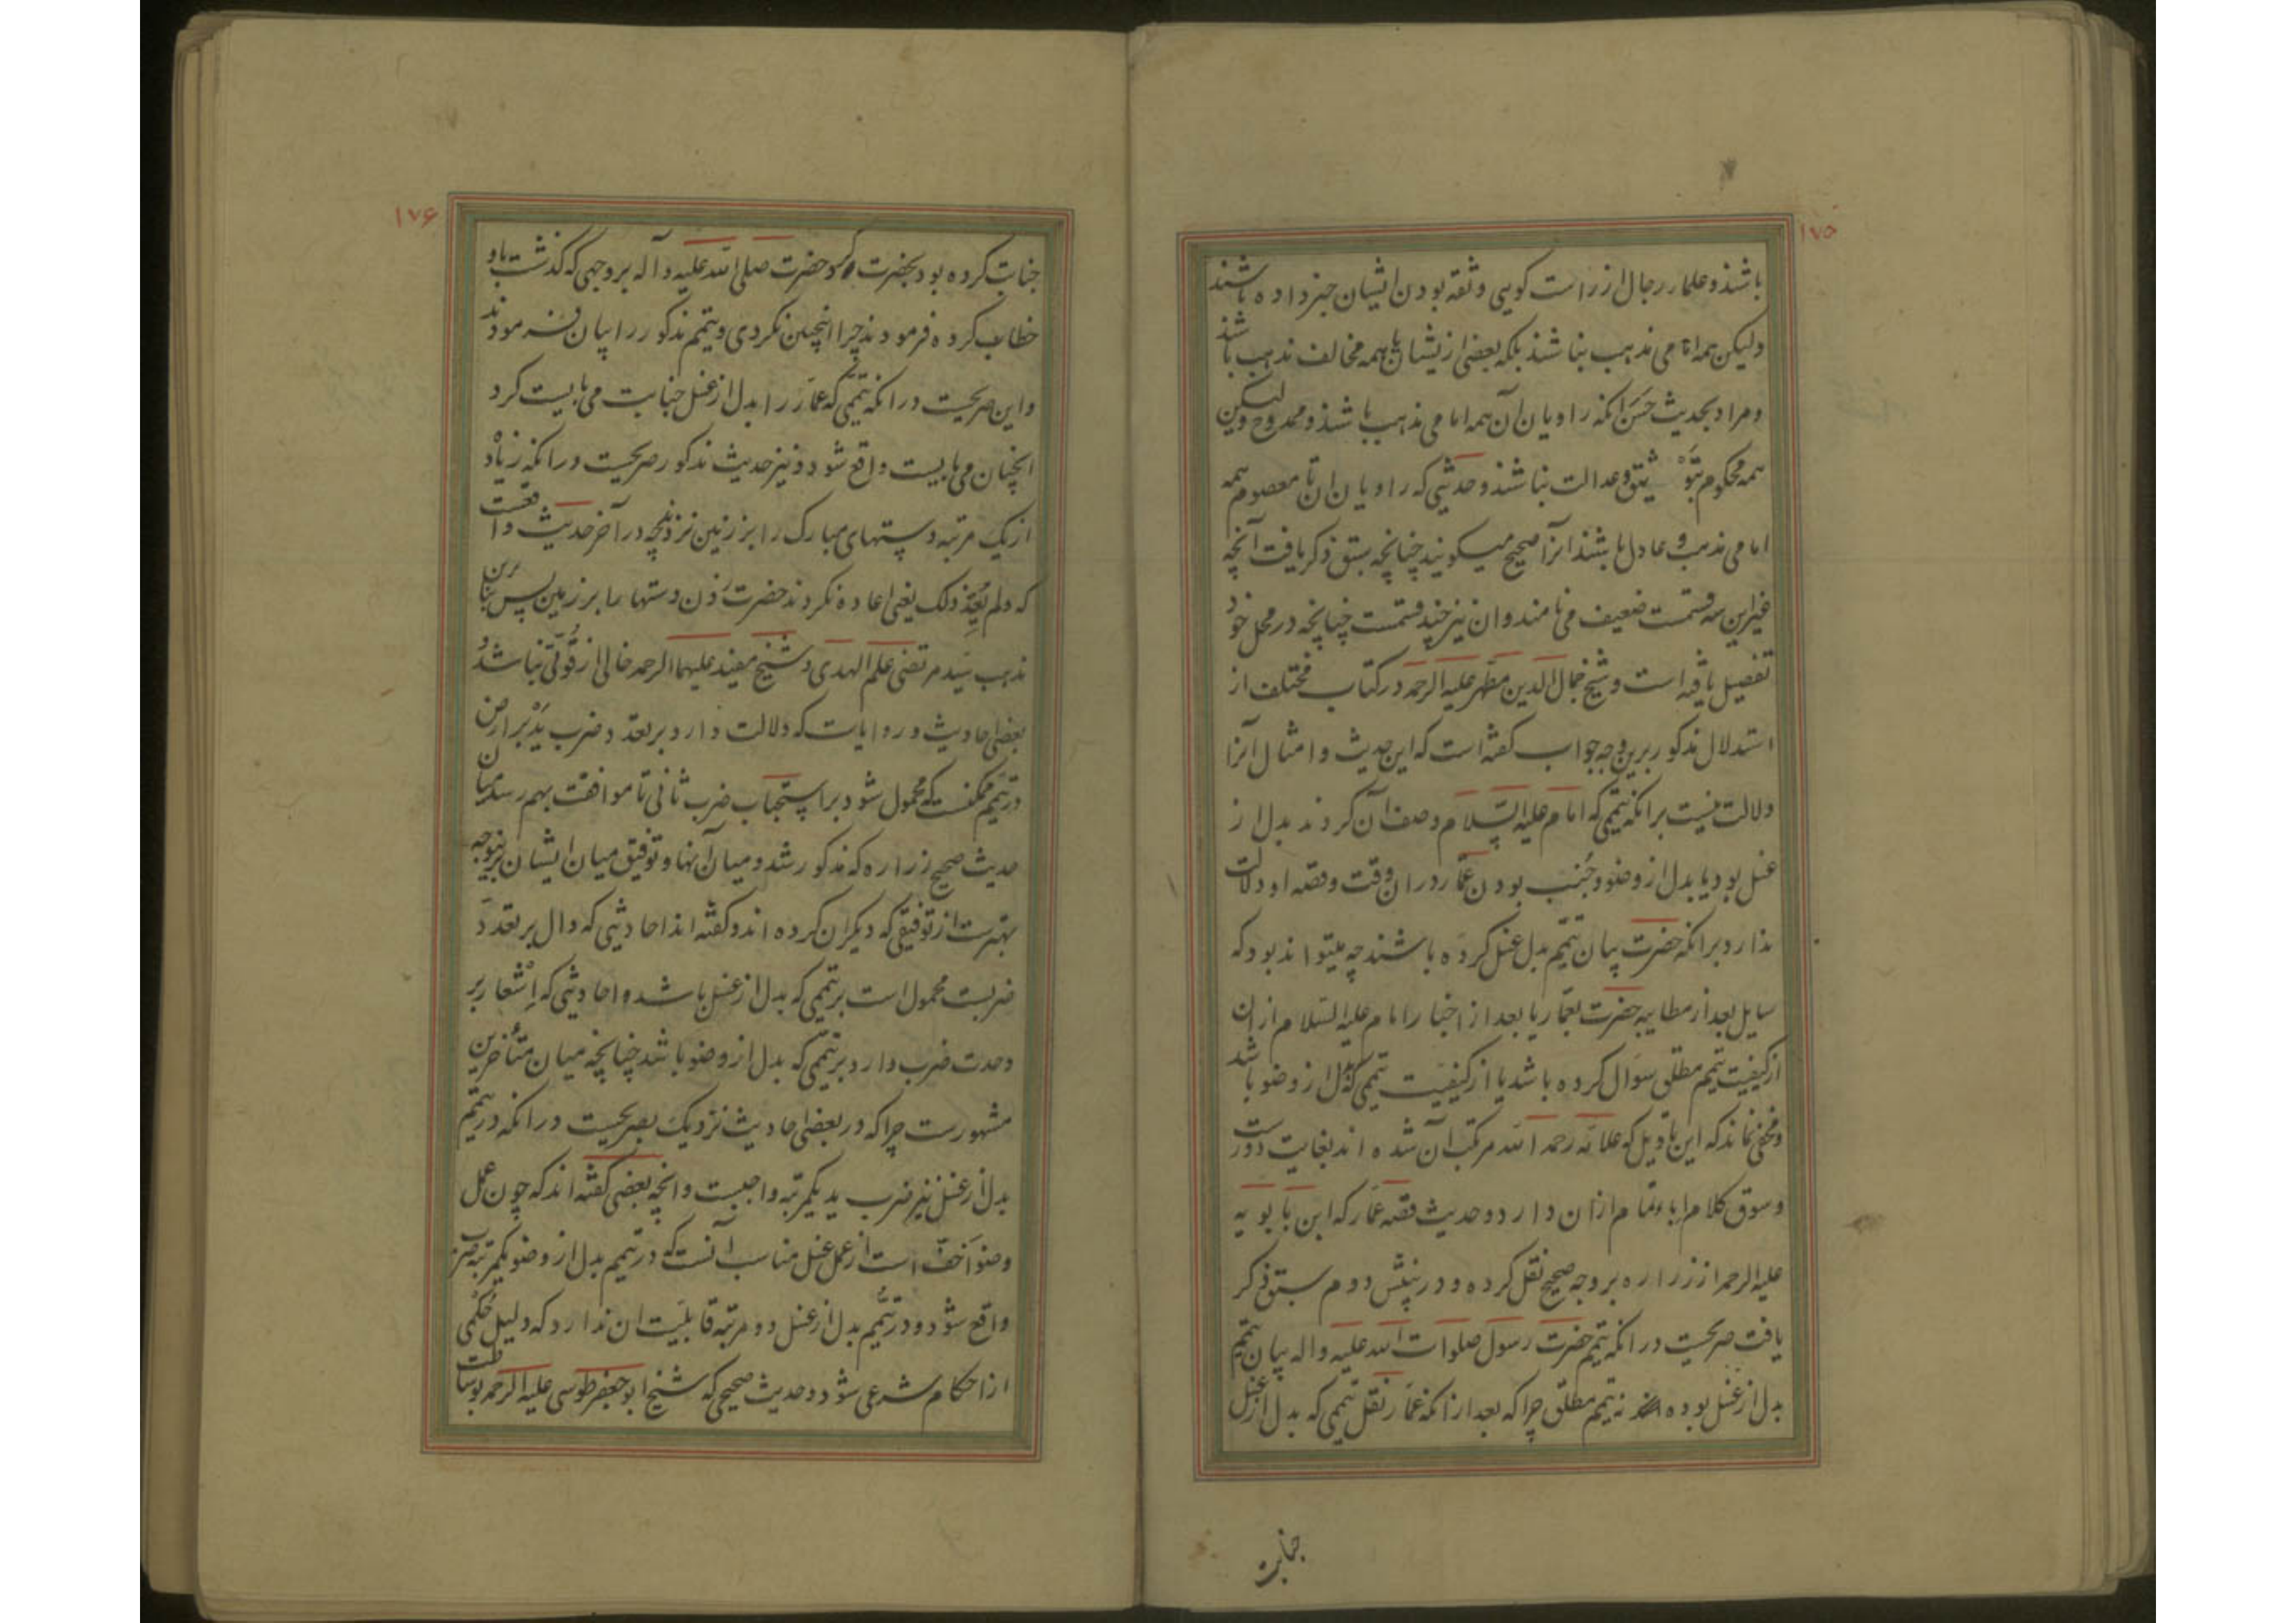 ۱۷۵
باشند و علماء رجال از راست کویی و ثقه بودن ایشان خبر داده باشند
ولیکن همه امامی مذهب نباشند بلکه بعضی ازیشان یا همه مخالف مذهب باشند
و مراد بحدیث حسن انکه راویان آن همه امامی مذهب باشند و ممدوح ولیکن
همه محکوم بتوثیق و عدالت نباشند و حدیثی که راویان ان تا معصوم همه
امامی مذهب و عادل باشند انرا صحیح میکویند چنانچه سبق ذکر یافت آنچه
غیر این سه قسمت ضعیف می نامند و ان نیز چند قسمت چنانچه در محل خود
تفصیل یافته است و شیخ جمال الدین مطهر علیه الرحمه در کتاب مختلف از
استدلال مذکور برین وجه جواب کفته است که این حدیث و امثال آنرا
دلالت نیست برانکه تیممی که امام علیه السلام وصف آن کردند بدل از
غسل بود یا بدل از وضو و جنب بودن عمار دران وقت و قصه او دلالت
ندارد برانکه حضرت بیان تیمم بدل غسل کرده باشند چه میتواند بود که
سایل بعد از مطایبه حضرت بعمار یا بعد از اخبار امام علیه السلام ازان
از کیفیت تیمم مطلق سوال کرده باشد یا از کیفیت تیممی که بدل از وضو باشد
و مخفی نماند که این تاویل که علامه رحمه الله مرتکب آن شده اند بغایت دورست
و سوق کلام اباء تمام ازان دارد و حدیث قصه عمار که ابن بابویه
علیه الرحمه از زراره بروجه صحیح نقل کرده و در بینش دوم سبق ذکر
یافت صریحست در انکه تیمم حضرت رسول صلوات الله علیه واله بیان تیمم
بدل از غسل بوده نه تیمم مطلق چرا که بعد ازانکه عمار نقل تیممی که بدل از غسل
جنابت
۱۷۶
جنابت کرده بود بحضرت کرد حضرت صلی الله علیه وآله بروجهی که کذشت باو
خطاب کرده فرمودند چرا اینچنین نکردی و تیمم مذکور را بیان فرمودند
و این صریحست در انکه تیممی که عمار را بدل از غسل جنابت می بایست کرد
انچنان می بایست واقع شود و نیز حدیث مذکور صریحست در انکه زیاد
از یک مرتبه دستهای مبارک را بر زمین نزدند چه در آخر حدیث واقعست
که ولم یعد ذلک یعنی اعاده نکردند حضرت زدن دستها را بر زمین پس بنابرین
مذهب سید مرتضی علم الهدی و شیخ مفید علیهما الرحمه خالی از قوتی نباشد و
بعضی احادیث و روایات که دلالت دارد بر تعدد ضرب ید بر ارض
در تیمم ممکنست که محمول شود بر استحباب ضرب ثانی تا موافقت بهم رسد میان
حدیث صحیح زراره که مذکور شد و میان آنها و توفیق میان ایشان برینوجه
بهترست از توفیقی که دیکران کرده اند و کفته اند احادیثی که دال بر تعدد
ضربست محمول است بر تیممی که بدل از غسل باشد و احادیثی که اشعار بر
وحدت ضرب دارد بر تیممی که بدل از وضو باشد چنانچه میان متأخرین
مشهورست چرا که در بعضی احادیث نزدیک بصریحست در انکه در تیمم
بدل از غسل نیز ضرب ید یکمرتبه واجبست و انچه بعضی کفته اند که چون عمل
وضو اخف است از عمل غسل مناسب آنست که در تیمم بدل از وضو یکمرتبه ضرب
واقع شود و در تیمم بدل از غسل دو مرتبه قابلیت ان ندارد که دلیل حکمی
از احکام شرعی شود و حدیث صحیحی که شیخ ابو جعفر طوسی علیه الرحمه بوساطت